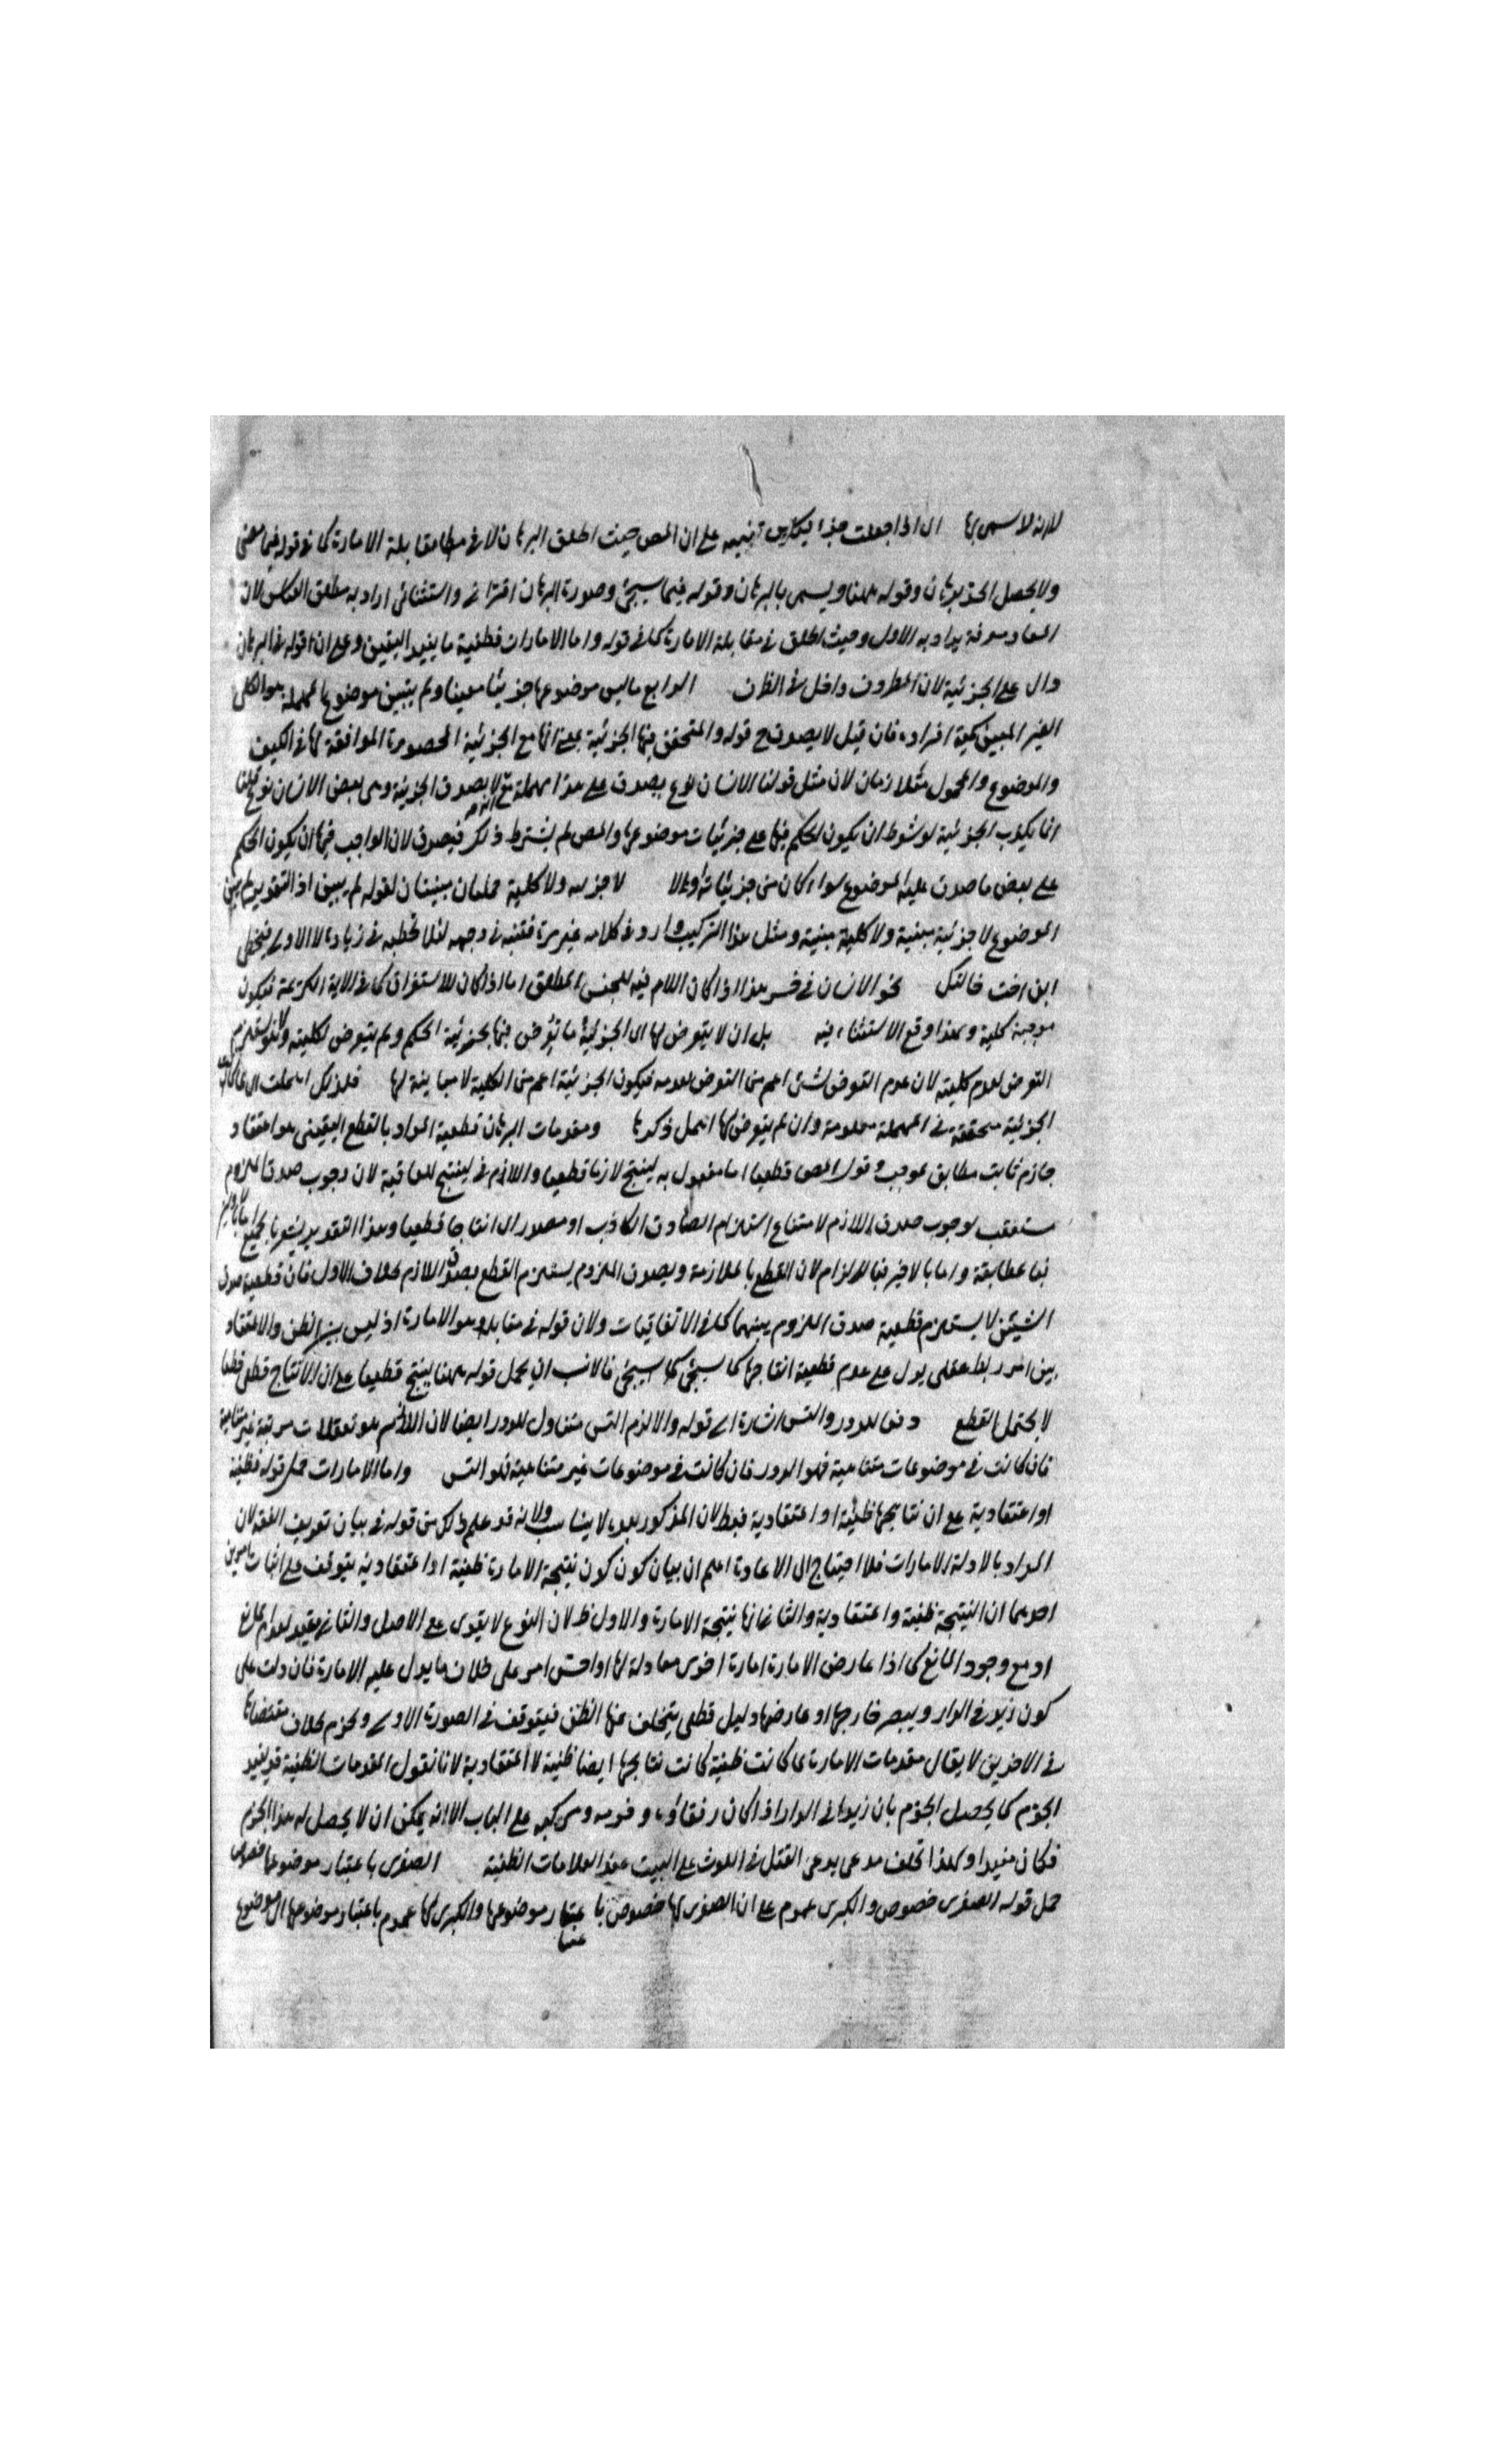 لانه لا يسمى بها اى اذا جعلت جزء القياس تنبيه على ان المص حيث اطلق البرهان لا فى مقابلة الامارة كما فى قوله فيما مضى
ولا يحصل الحد ببرهان وقوله ههنا ويسمى بالبرهان وقوله فيما سيجئ وصورة البرهان اقترانى واستثنائى اراد به مطلق القياس لان
يراد به الاول وحيث اطلق فى مقابلة الامارة كما فى قوله واما الامارات فظنية ما يفيد اليقين وعلى ان قوله فى البرهان
دال على الجزئية لان المظروف داخل فى الظرف الرابع ما ليس موضوعها جزئيا معينا ولم يتبين موضوعها مهملة هو الكلى
الغير المبين كمية افراده فان قيل لا يصدق ح قوله والمتحقق فيها الجزئية بمعنى انها مع الجزئية المحصورة الموافقة لها فى الكيف
والموضوع والمحمول متلازمان لان مثل قولنا الانسان نوع يصدق على هذا مهملة مع انه لا يصدق الجزئية وهى بعض الانسان نوع قلنا
انما يكذب الجزئية لو شرط ان يكون الحكم فيها على جزئيات موضوعها والمص لم يشترط ذلك فيصدق لان الواجب فيها ان يكون الحكم
على بعض ما صدق عليه الموضوع سواء كان من جزئياته او لا لا جزئية ولا كلية مبينتان لقوله لم يبين اذ التقدير لم يبين
الموضوع لا جزئية مبينة ولا كلية مبينة ومثل هذا التركيب وارد فى كلامه غير مرة فتنبه فى وجهه لئلا تخطئه فى زيادة لا الاولى فتخطى
ابن اخت خالتك نحو الانسان فى خسر هذا اذا كان اللام فيه للجنس المطلق اما اذا كان للاستغراق كما فى الاية الكريمة فيكون
موجبة كلية ولهذا وقع الاستثناء فيه بل ان لا يتعرض لها اى الجزئية ما تعرض فيها بجزئية الحكم ولم يتعرض لكليته ولا يستلزم
التعرض لعدم كليته لان عدم التعرض لشئ اعم من التعرض لعدمه فيكون الجزئية اعم من الكلية لا مباينة لها فلذلك اهملت اى لما كانت
الجزئية متحققة فى المهملة معلومة وان لم يتعرض لها اهمل ذكرها ومقدمات البرهان قطعية المراد بالقطع اليقينى هو اعتقاد
جازم ثابت مطابق لموجب وقول المص قطعيا اما مفعول به لينتج لازما قطعيا واللازم فى لينتج للعاقبة لان وجوب صدق الملزوم
مستعقب لوجوب صدق اللازم لامتناع استلزام الصادق الكاذب او مصدر اى انتاجا قطعيا وهذا التقدير يشعر
بالمطابقة واما بالاخير فبالالتزام لان القطع بالملازمة وبصدق الملزوم يستلزم القطع بصدق اللازم بخلاف الاول فان قطعية صدق
الشيئين لا يستلزم قطعية صدق اللزوم بينهما كما فى الاتفاقيات ولان قوله فى مقابله وهو الامارة اذ ليس بين الظن والاعتقاد
وبين امر ربط عقلى يدل على عدم قطعية انتاجها كما سيجئ فالانسب ان يحمل قوله ههنا ينتج قطعيا على ان الانتاج قطعى
لا يحتمل القطع دفعا للدور والتس اشارة الى قوله والا لزم التس متناول للدور ايضا لان اللازم هو تعقلات مرتبة غير متناهية
فان كانت فى موضوعات متناهية فهو الدور فان كانت فى موضوعات غير متناهية فهو التس واما الامارات حمل قوله فظنية
او اعتقادية على ان نتائجها ظنية او اعتقادية فقط لان المذكور بعده لا يناسب ولانه قد علم ذلك من قوله فى بيان تعريف الفقه لان
المراد بالادلة الامارات فلا احتياج الى الاعادة اعلم ان بيان كون نتيجة الامارة ظنية او اعتقادية يتوقف على اثبات امرين
احدهما ان النتيجة ظنية واعتقادية والثانى انها نتيجة الامارة والاول ظ لان الفرع لا يقوى على الاصل والثانى
او مع وجود المانع كما اذا عارض الامارة امارة اخرى معادلة لها او احس امر على خلاف ما يدل عليه الامارة فان دلت على
كون زيد فى الدار ويبصر خارجها او عارضها دليل قطعى يتخلف عنها الظن فيتوقف فى الصورة الاولى ويجزم بخلاف مقتضاها
فى الاخريين لا يقال مقدمات الامارة لما كانت ظنية كانت نتائجها ايضا ظنية لا اعتقادية لانا نقول المقدمات الظنية قد يفيد
الجزم كما يحصل الجزم بان زيدا فى الدار اذا كان رفقاؤه وخدمه ومركبه على الباب الا انه يمكن ان لا يحصل له هذا الجزم
فكان مفيدا ولهذا تحلف مدعى يدعى القتل فى اللوث على البت عند العلامات الظنية الصغرى باعتبار موضوعها خصوص
حمل قوله الصغرى خصوص والكبرى عموم على ان الصغرى لها خصوص باعتبار موضوعها والكبرى لها عموم باعتبار موضوعها اى موضوع